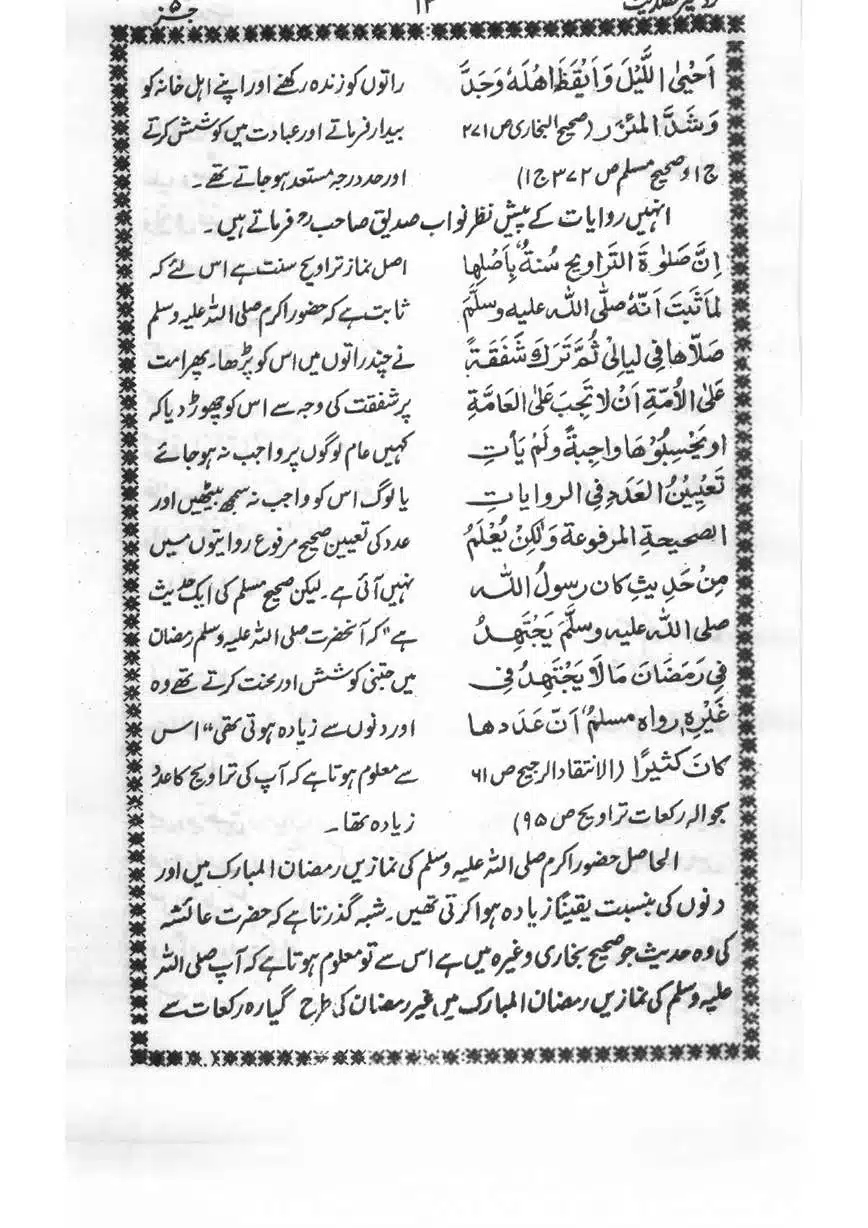 جز ۵
۱۲
اَحْیٰی اللَّیْلَ وَاَیْقَظَ اَهْلَهٗ وَجَدَّ
وَشَدَّ المئزر (صحیح البخاری ص ۲۷۱
ج ۱ و صحیح مسلم ص ۳۷۲ ج ۱)
راتوں کو زندہ رکھتے اور اپنے اہل خانہ کو
بیدار فرماتے اور عبادت میں کوشش کرتے
اور حد درجہ مستعد ہو جاتے تھے۔
انہیں روایات کے پیش نظر نواب صدیق صاحبؒ فرماتے ہیں۔
اِنَّ صَلٰوةَ التَّراویحِ سُنةٌ بِاَصْلِها
لمَا ثَبَتَ اَنَّهٗ صلَّی اللّٰه علیه وسلَّمَ
صَلّاها فی لیالیْ ثُمَّ تَرَكَ شَفَقَةً
عَلیَ الاُمَّةِ اَنْ لا تَجِبَ عَلَی العَامَّةِ
او یَحْسِبُوْهَا واجِبةً وَلَمْ یَأتِ
تَعْیِیْنُ العَدَدِ فِی الروایاتِ
الصحیحةِ المرفوعة وَلٰكِنْ یُعْلَمُ
مِنْ حَدِیثِ كان رسولُ اللّٰه
صلی اللّٰه علیه وسلَّمَ یَجْتَهِدُ
فِی رَمَضَانَ مَالَا یَجْتَهِدُ فی
غَیْرِهٖ رواه مسلمٌ اَنّ عَدَدها
كانَ كثیرًا (الانتقاد الرجیح ص ۶۱
بحوالہ رکعات تراویح ص ۹۵)
اصل نماز تراویح سنت ہے اس لئے کہ
ثابت ہے کہ حضور اکرم صلی اللہ علیہ وسلم
نے چند راتوں میں اس کو پڑھا۔ پھر امت
پر شفقت کی وجہ سے اس کو چھوڑ دیا کہ
کہیں عام لوگوں پر واجب نہ ہو جائے
یا لوگ اس کو واجب نہ سمجھ بیٹھیں اور
عدد کی تعیین صحیح مرفوع روایتوں میں
نہیں آئی ہے۔ لیکن صحیح مسلم کی ایک حدیث
ہے "کہ آنحضرت صلی اللہ علیہ وسلم رمضان
میں جتنی کوشش اور محنت کرتے تھے وہ
اور دنوں سے زیادہ ہوتی تھی" اس
سے معلوم ہوتا ہے کہ آپ کی تراویح کا عدد
زیادہ تھا۔
الحاصل حضور اکرم صلی اللہ علیہ وسلم کی نمازیں رمضان المبارک میں اور
دنوں کی بنسبت یقیناً زیادہ ہوا کرتی تھیں۔ شبہ گذرتا ہے کہ حضرت عائشہ
کی وہ حدیث جو صحیح بخاری وغیرہ میں ہے اس سے تو معلوم ہوتا ہے کہ آپ صلی اللہ
علیہ وسلم کی نمازیں رمضان المبارک میں غیر رمضان کی طرح گیارہ رکعات سے